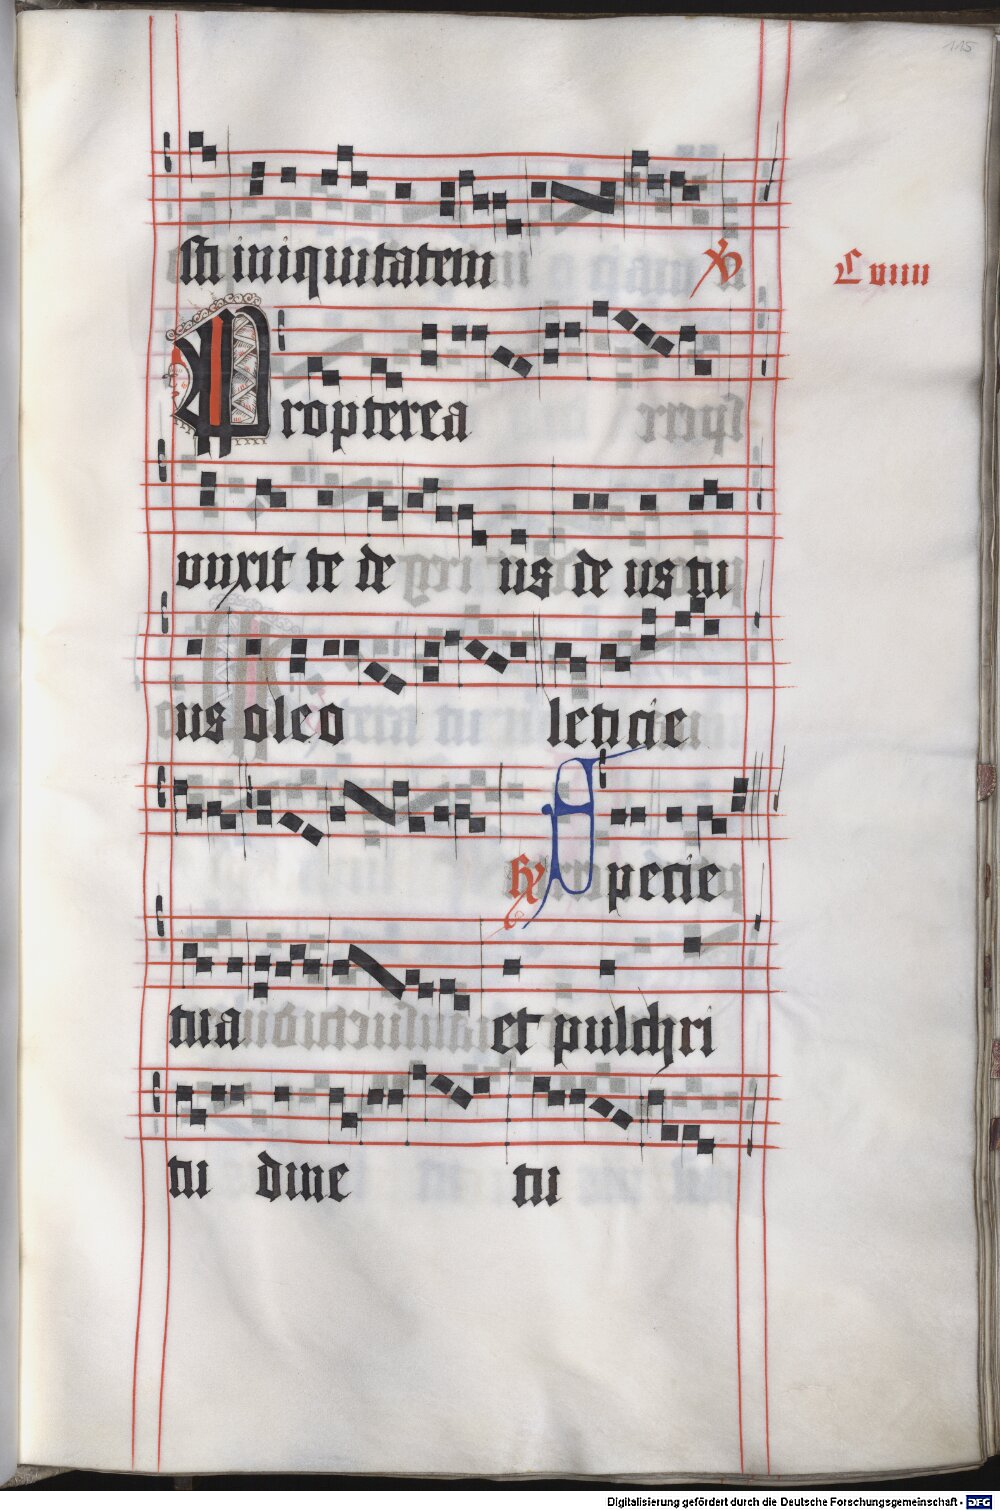 115
sti iniquitatem ℣
C viiii
Propterea
vnxit te de us de us tu
us oleo leticie
℟ Specie
tua et pulchri
tu dine tu
Digitalisierung gefördert durch die Deutsche Forschungsgemeinschaft - DFG